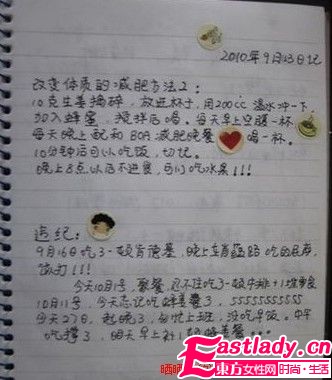 2010年9月13日记
改变体质的减肥方法2：
10克生姜捣碎，放进杯子，用200cc 温水冲一下
加入蜂蜜，搅拌后喝。每天早上空腹一杯
每天晚上配和 BOA 减肥晚餐 喝一杯。
10分钟后可以吃饭，切记。
晚上8点以后不进食，可以吃水果！！！
违纪：
9月16日吃了一顿肯德基，晚上在
饭]]！！！
今天10月1号，聚餐，忍不住吃了一顿牛排+1
10月11号，今天忘记吃蜂姜素了，5555555555
今天27日，起晚了，匆忙上班，没吃早饭。中午
吃撑了，明天早上补1
Eastlady.cn
东方女性网 时尚·生活